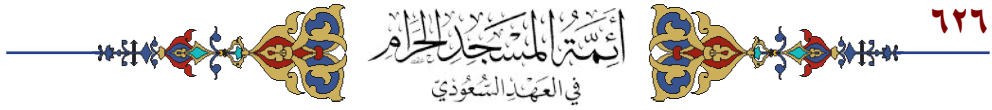 ٦٢٦
أَئِمَّةُ المَسْجِدِ الحَرَامِ
في العَهْدِ السُّعُوديّ